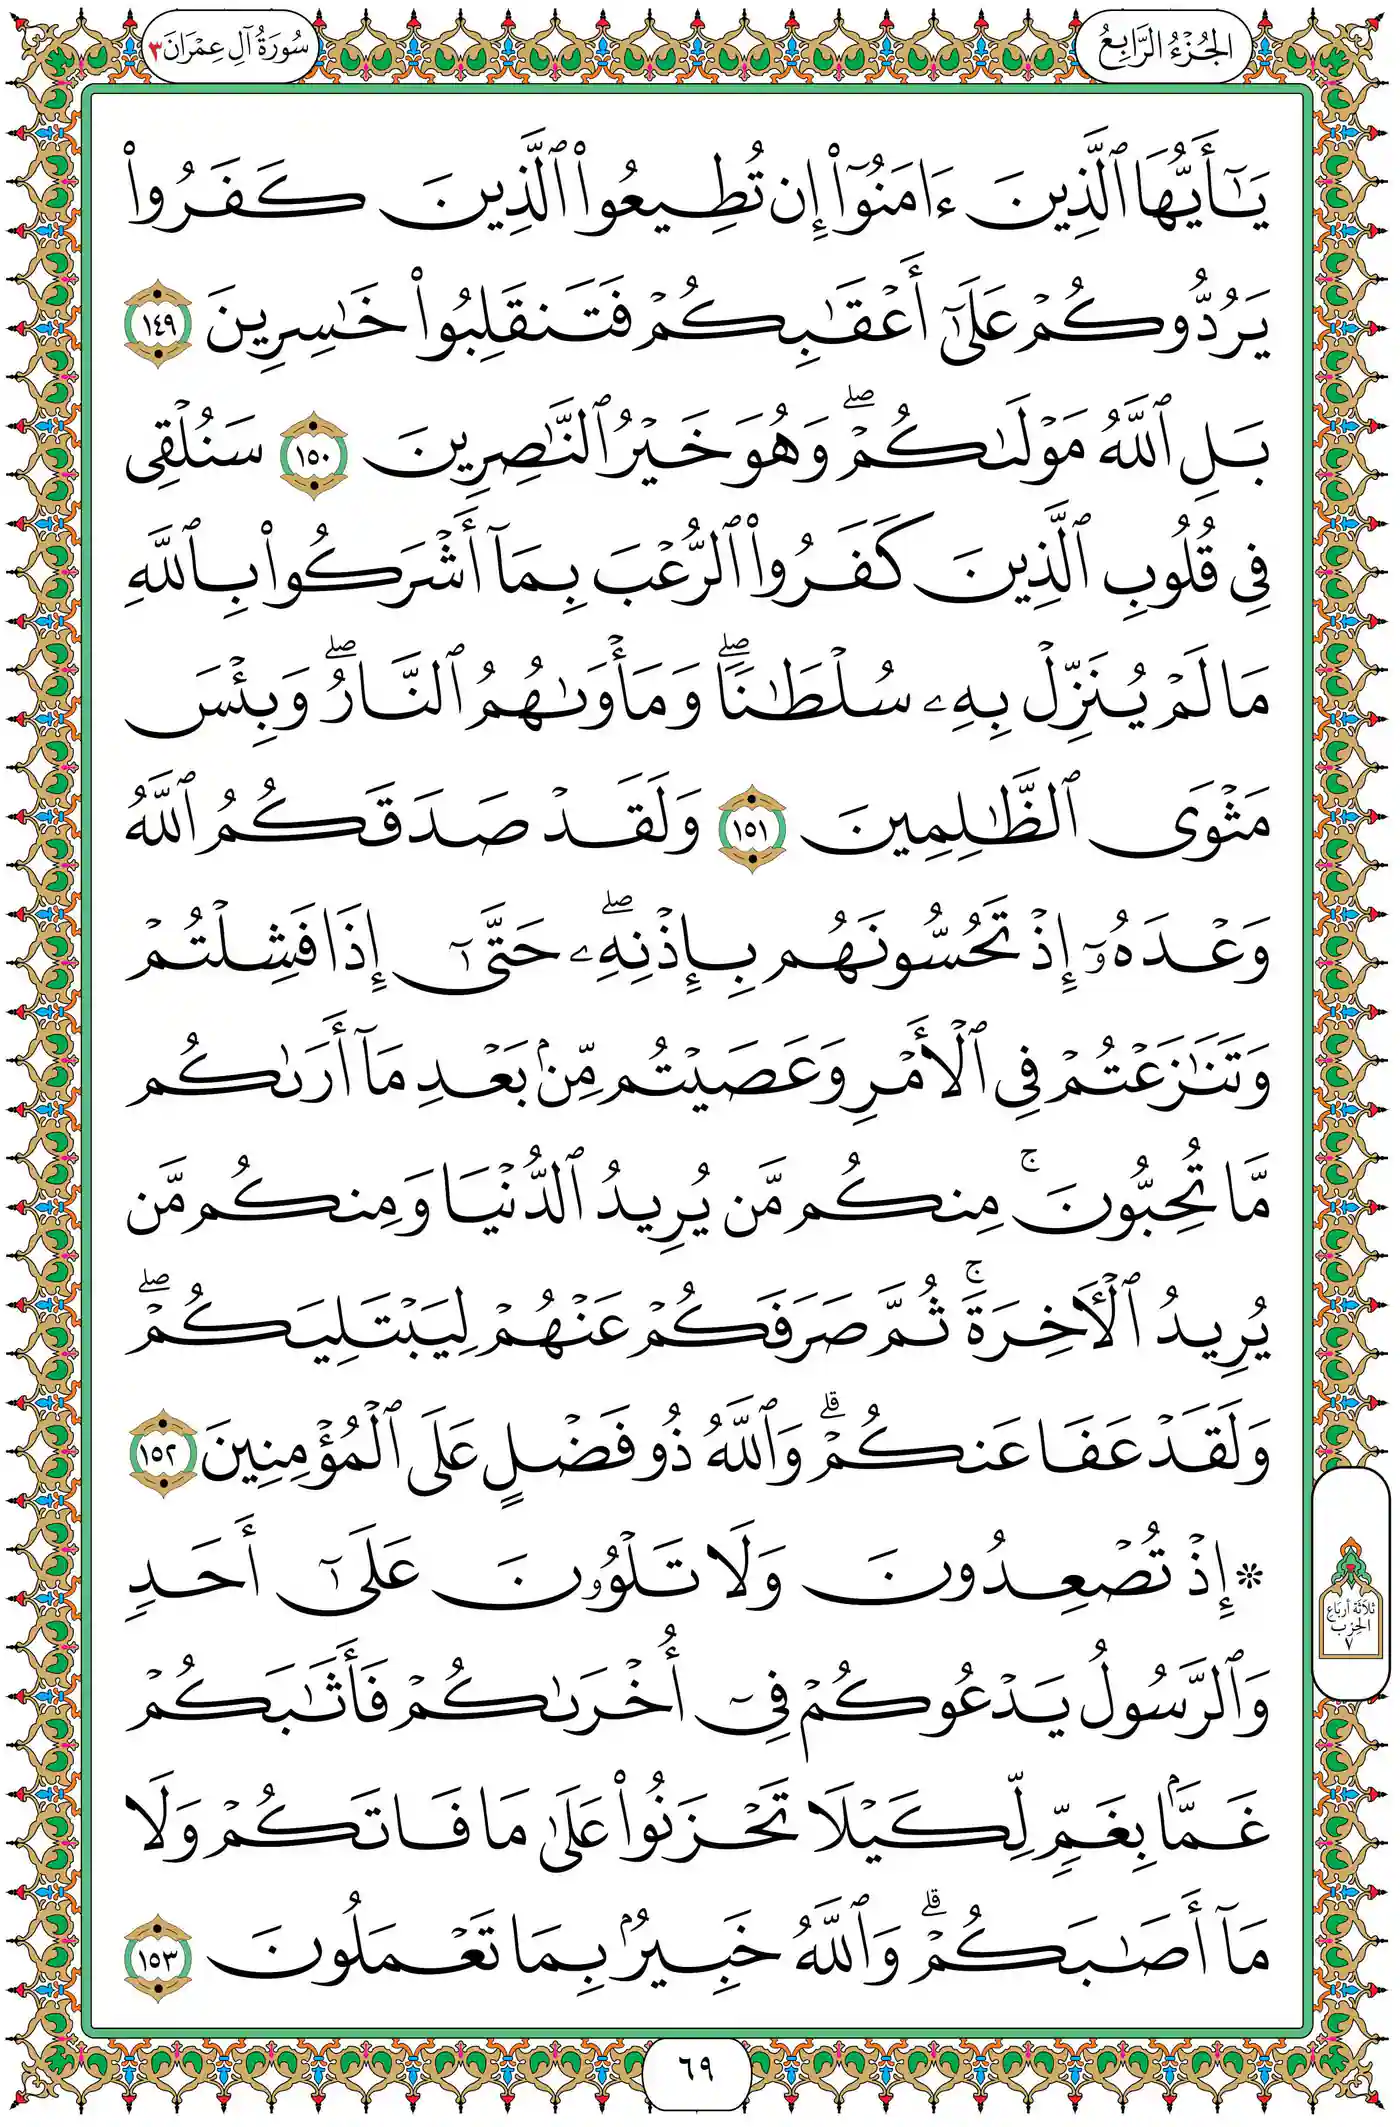 الجُزْءُ الرَّابِعُ
سُورَةُ آلِ عِمْرَانَ ٣
يَٰٓأَيُّهَا ٱلَّذِينَ ءَامَنُوٓا۟ إِن تُطِيعُوا۟ ٱلَّذِينَ كَفَرُوا۟
يَرُدُّوكُمْ عَلَىٰٓ أَعْقَٰبِكُمْ فَتَنقَلِبُوا۟ خَٰسِرِينَ ١٤٩
بَلِ ٱللَّهُ مَوْلَىٰكُمْ ۖ وَهُوَ خَيْرُ ٱلنَّٰصِرِينَ ١٥٠ سَنُلْقِى
فِى قُلُوبِ ٱلَّذِينَ كَفَرُوا۟ ٱلرُّعْبَ بِمَآ أَشْرَكُوا۟ بِٱللَّهِ
مَا لَمْ يُنَزِّلْ بِهِۦ سُلْطَٰنًا ۖ وَمَأْوَىٰهُمُ ٱلنَّارُ ۖ وَبِئْسَ
مَثْوَى ٱلظَّٰلِمِينَ ١٥١ وَلَقَدْ صَدَقَكُمُ ٱللَّهُ
وَعْدَهُۥٓ إِذْ تَحُسُّونَهُم بِإِذْنِهِۦ ۖ حَتَّىٰٓ إِذَا فَشِلْتُمْ
وَتَنَٰزَعْتُمْ فِى ٱلْأَمْرِ وَعَصَيْتُم مِّنۢ بَعْدِ مَآ أَرَىٰكُم
مَّا تُحِبُّونَ ۚ مِنكُم مَّن يُرِيدُ ٱلدُّنْيَا وَمِنكُم مَّن
يُرِيدُ ٱلْـَٔاخِرَةَ ۚ ثُمَّ صَرَفَكُمْ عَنْهُمْ لِيَبْتَلِيَكُمْ ۖ
وَلَقَدْ عَفَا عَنكُمْ ۗ وَٱللَّهُ ذُو فَضْلٍ عَلَى ٱلْمُؤْمِنِينَ ١٥٢
* إِذْ تُصْعِدُونَ وَلَا تَلْوُۥنَ عَلَىٰٓ أَحَدٍ
وَٱلرَّسُولُ يَدْعُوكُمْ فِىٓ أُخْرَىٰكُمْ فَأَثَٰبَكُمْ
غَمًّۢا بِغَمٍّ لِّكَيْلَا تَحْزَنُوا۟ عَلَىٰ مَا فَاتَكُمْ وَلَا
مَآ أَصَٰبَكُمْ ۗ وَٱللَّهُ خَبِيرٌۢ بِمَا تَعْمَلُونَ ١٥٣
ثلاثة أرباع
الحزب
٧
٦٩